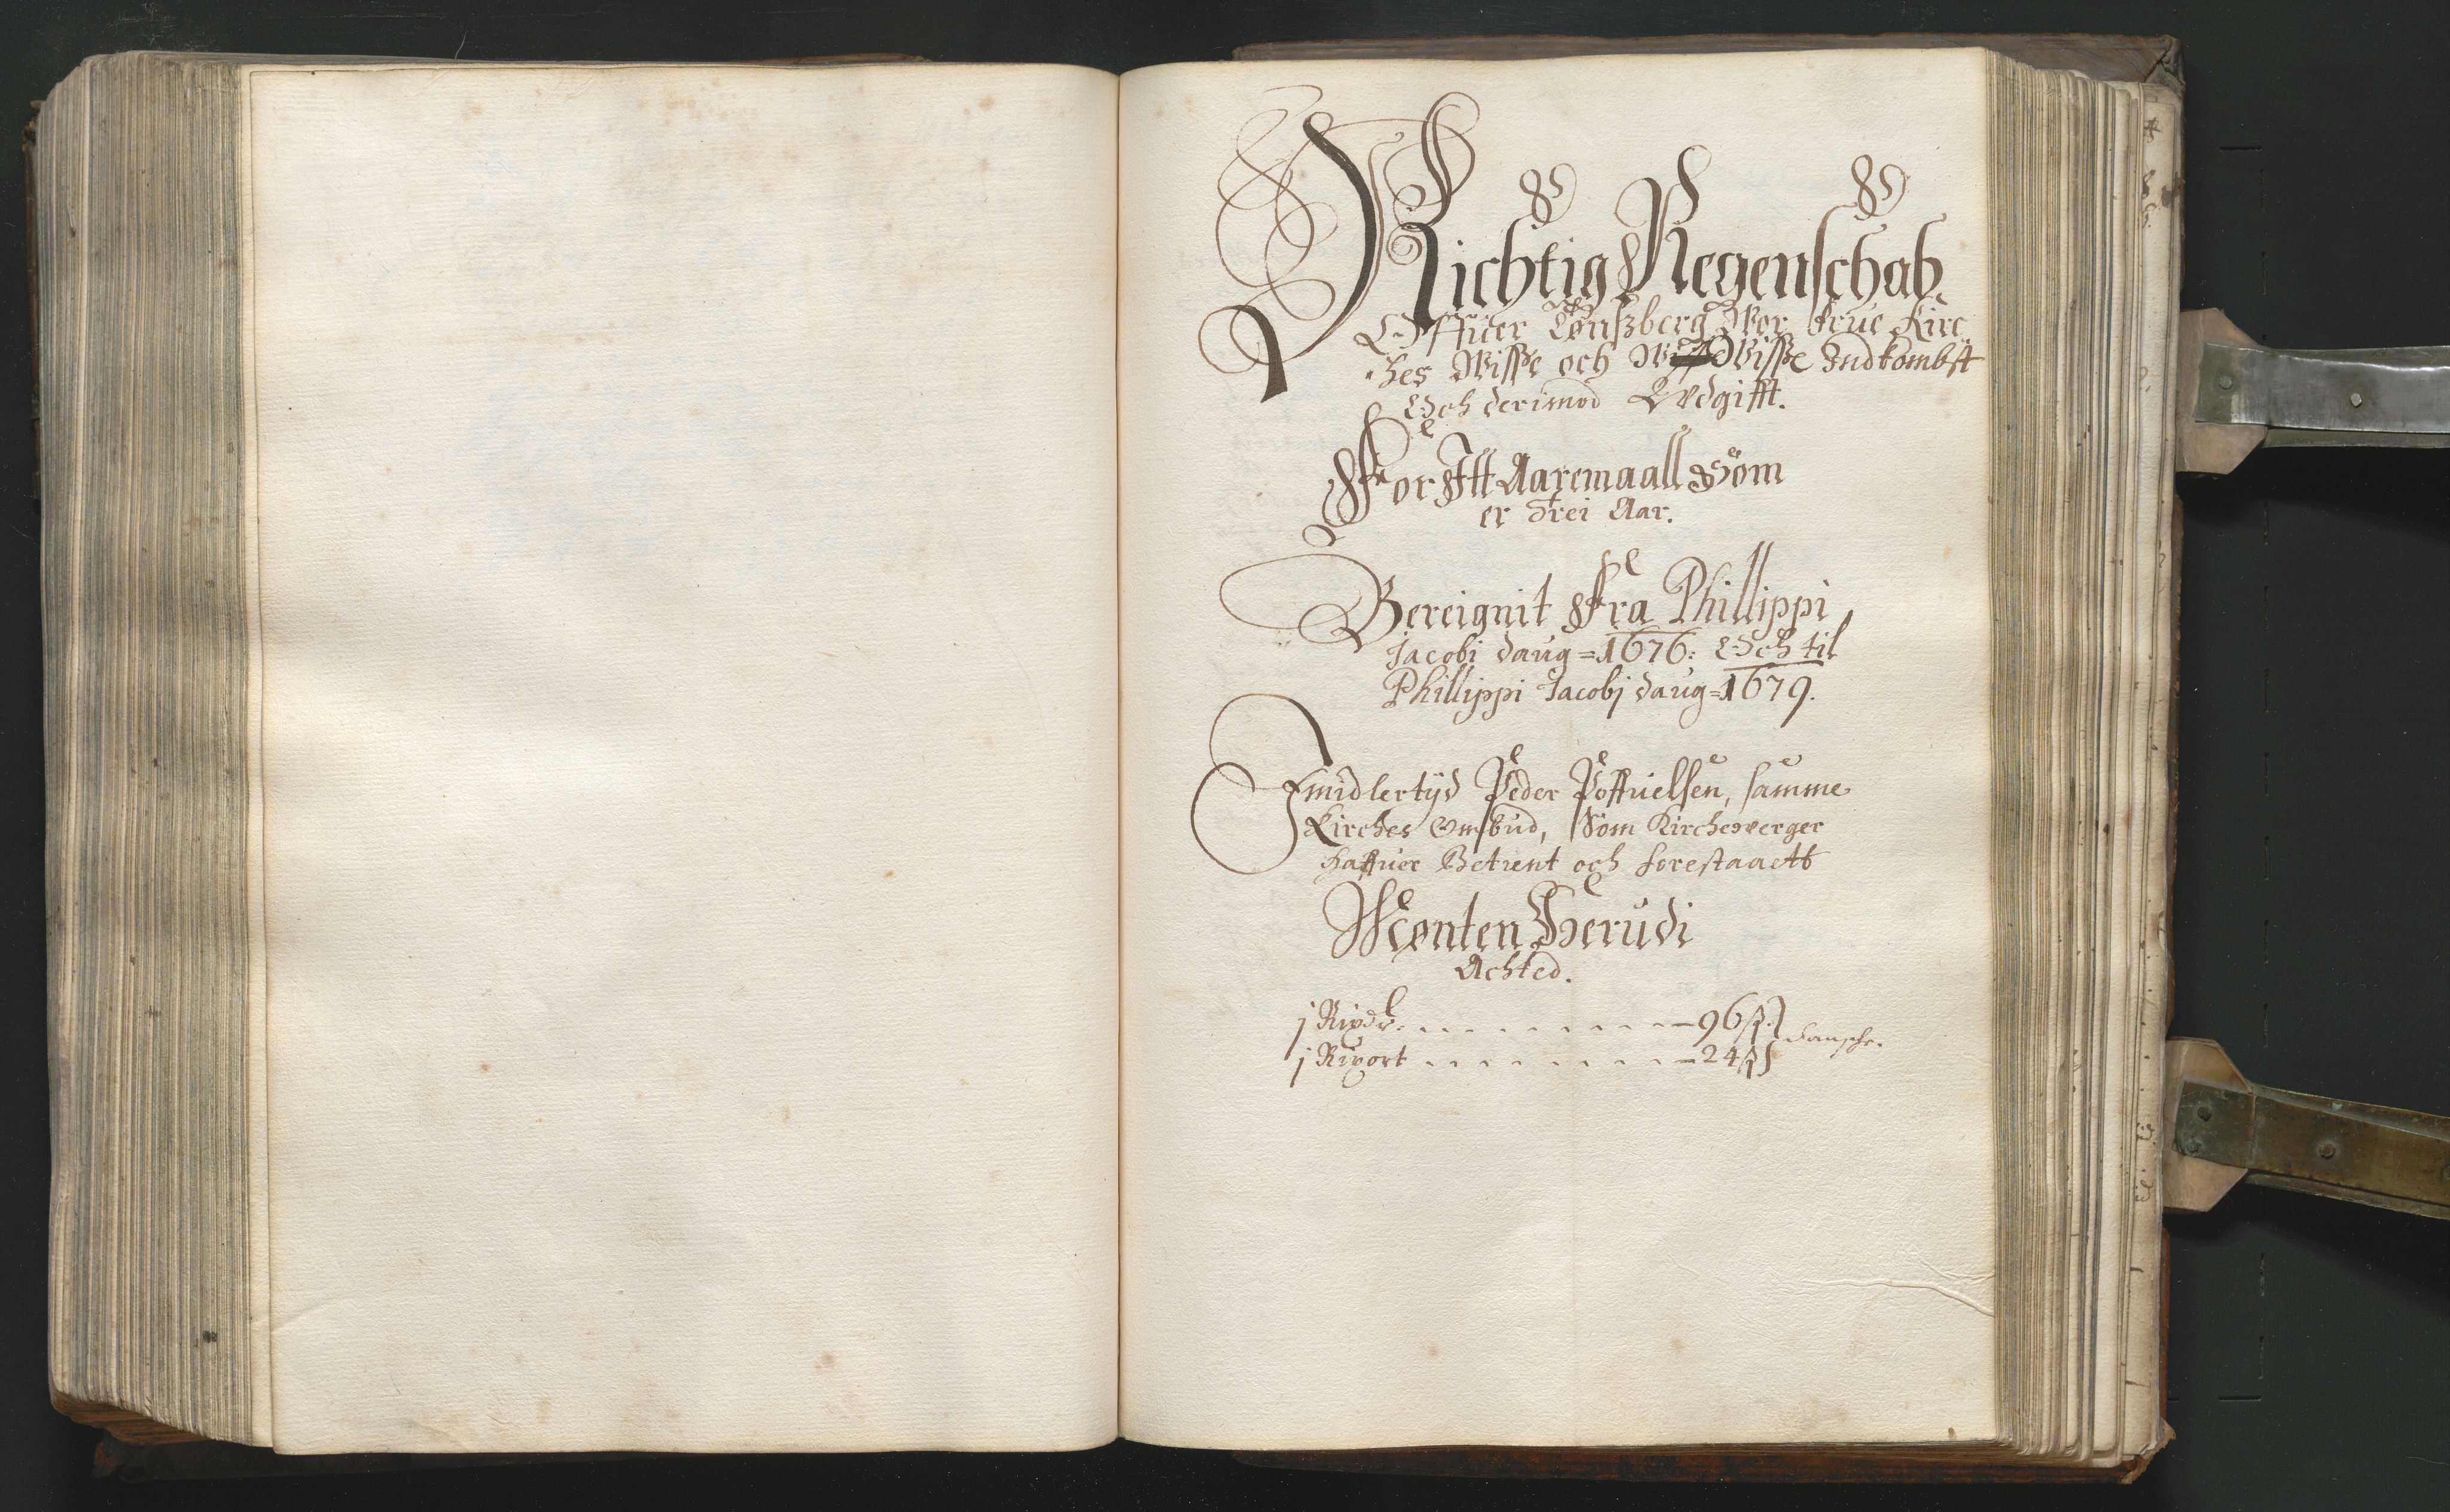 Richtig Regenschab
Offuer Tønßberg Wor Frue Kirc
hes Wisse och Wisse Indkombst
Och derimod Wdgifft.
For Itt Aaremaall Som
er Trei Aar.
Bereignit Fra Phillippi
Jacobi daug=1676: Och til
Phillippi Jacobj daug=1679.
Imidlertijd Peder Poffuelsen, samme
Kirches Ombud, Som Kircheverger
haffuer Betient och forestaaett
Mønten Herudi
Achted.
j Rixdr. - - - - - - - - - 96 ß
danshe.
j Rixort - - - - - - - - - 24 ß